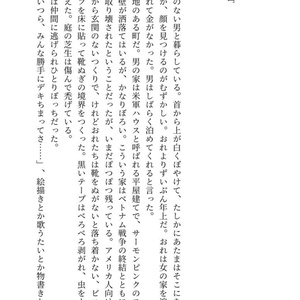 のない男と暮らしている。首から上が白くぼやけて、たしかにあたまはそこに
か、顔を見つけるのがむずかしい。おれよりずいぶん年上だ。おれは女の家を
れて金がなかった。男はしばらく泊めてくれると言った。
地のある町だ。男の家は米軍ハウスと呼ばれる平屋建で、サーモンピンクの
壁が洒落てはいるが、かなりぼろい。こういう家はベトナム戦争の終結ととも
取り壊されたということだったが、いまだぽつぽつ残っている。アメリカ人向け
から玄関のないつくりで、けれどおれたちは靴をぬがないと落ち着かない、ビ
プを床に貼って靴ぬぎの境界をつくった。黒いテープはべろべろ剥がれ、虫を
えた。庭の芝生は傷んで禿げている。
は仲間に逃げられひとりぼっちだった。
いつら、みんな勝手にデキちまってさ……」、絵描きとか歌うたいとか物書き